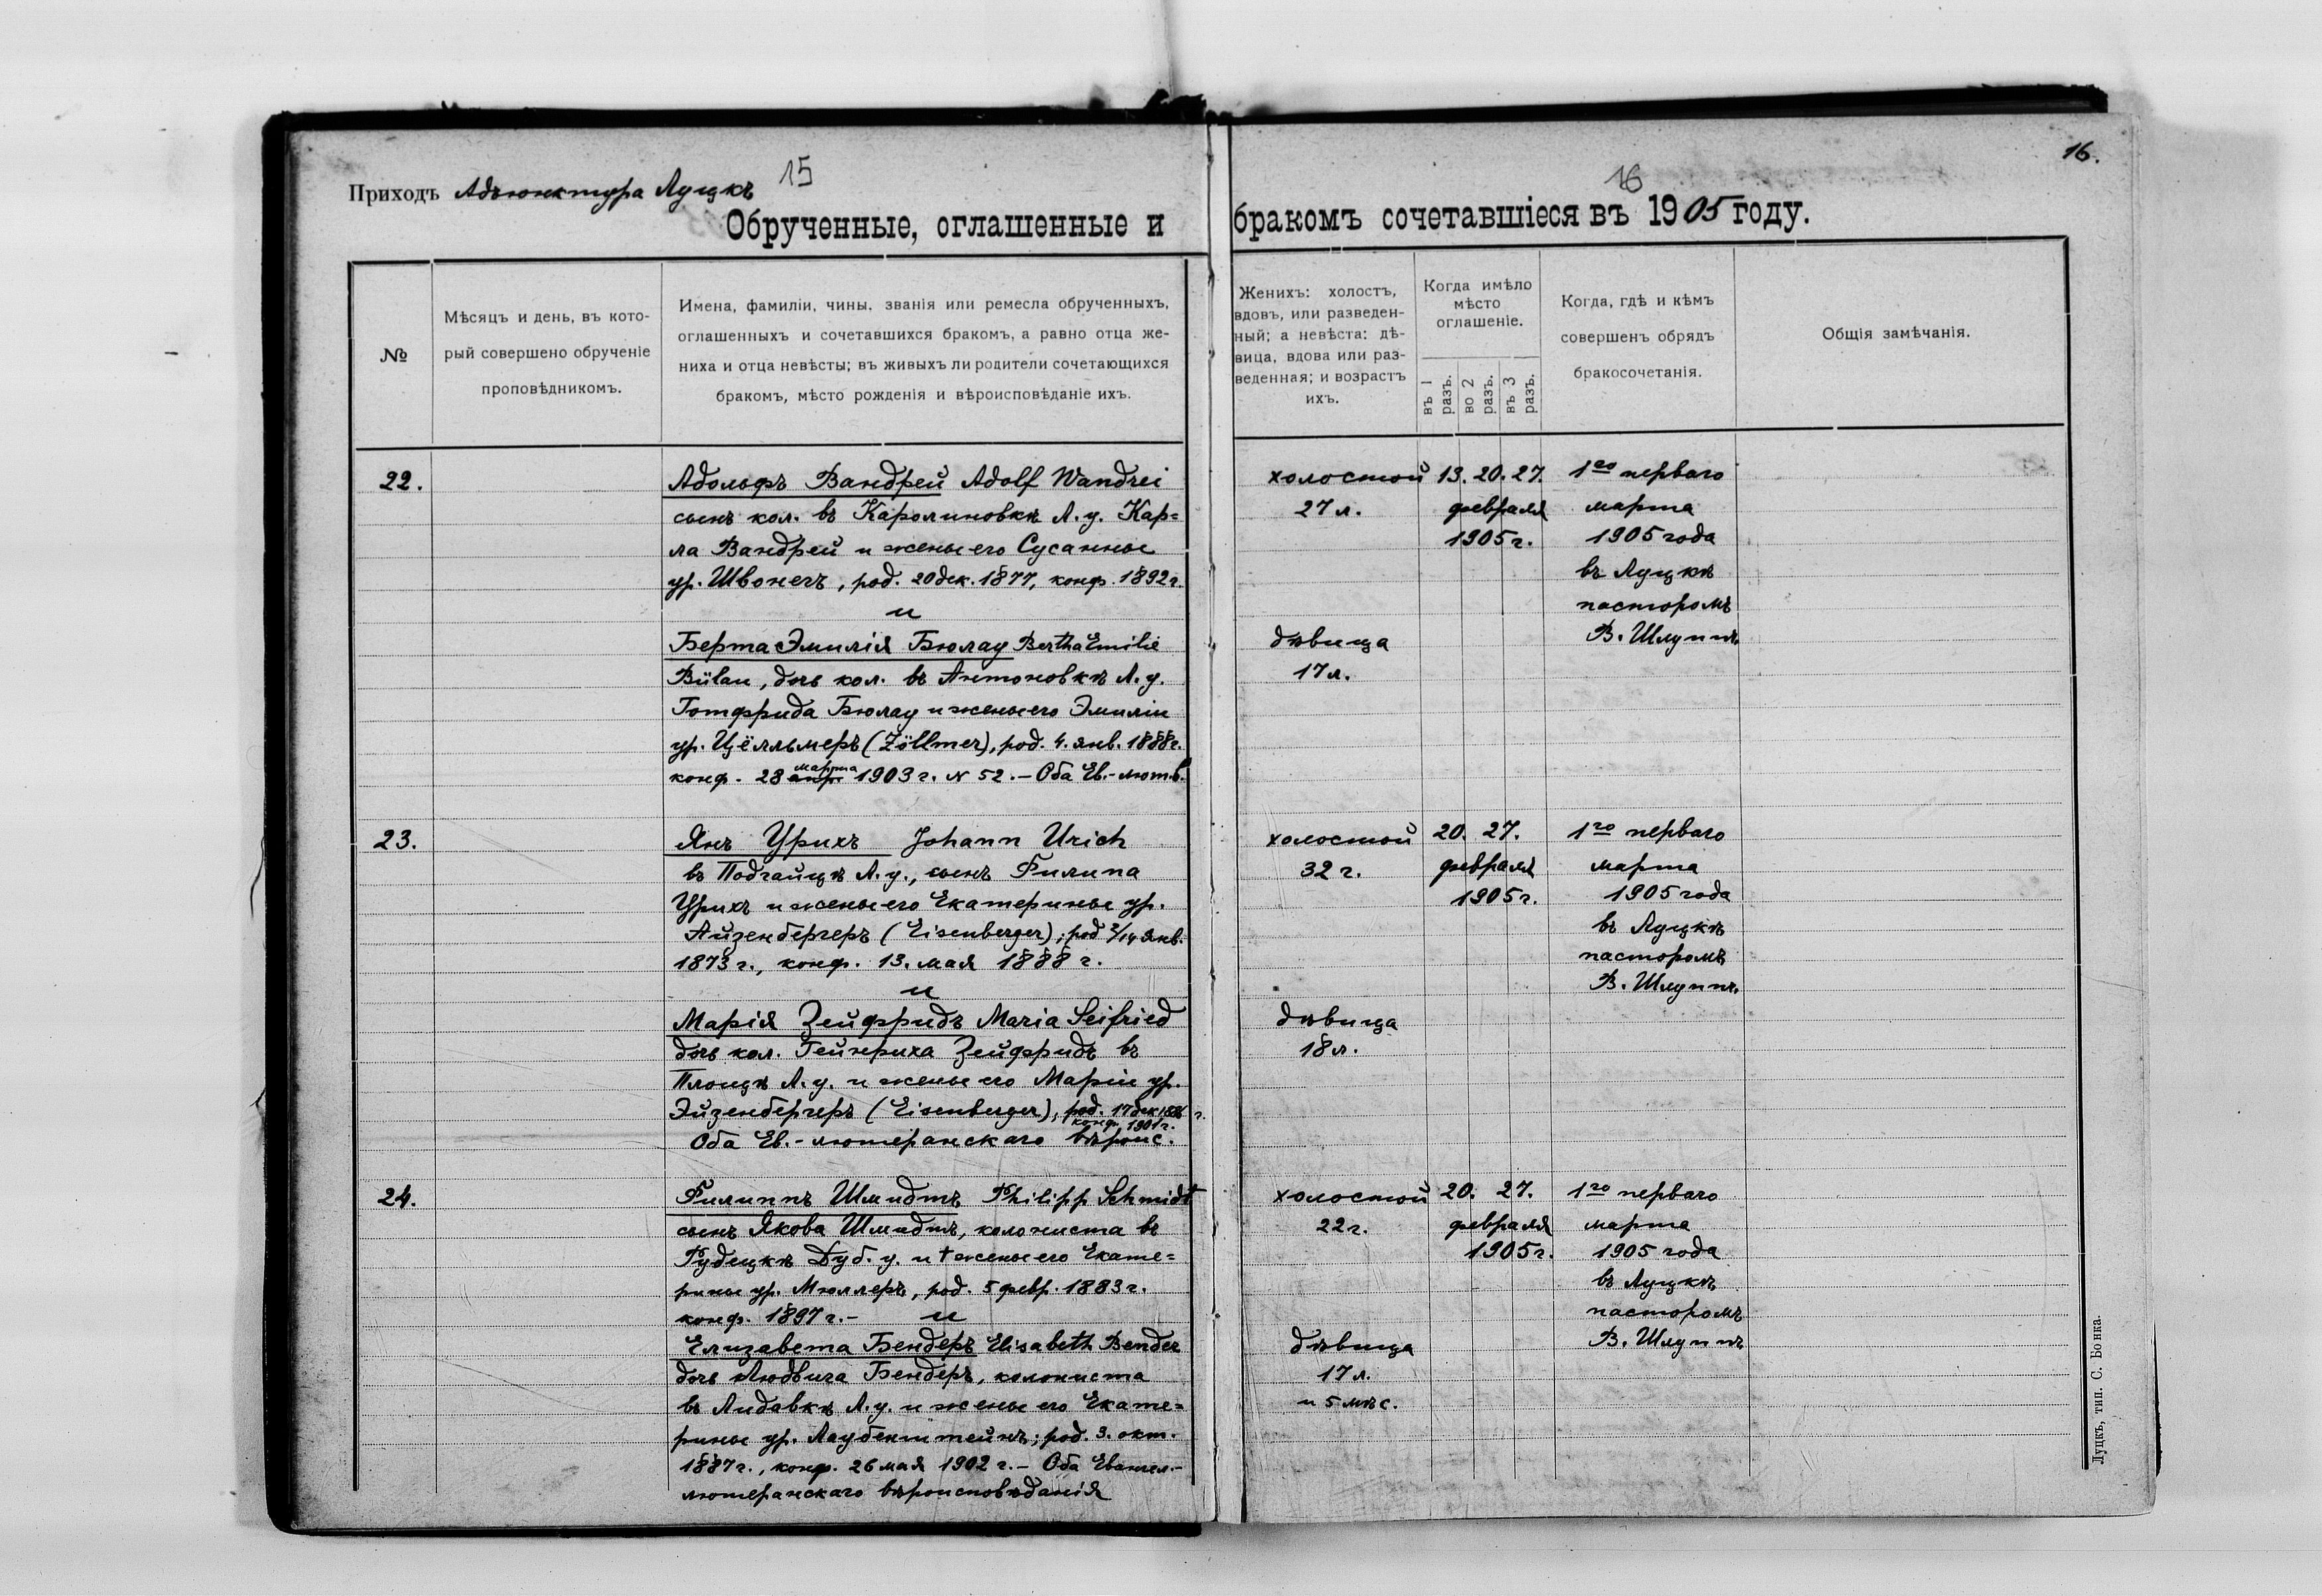 15
16
16.
Приходъ Адъюнктура Луцкъ
Обрученные, оглашенные и бракомъ сочетавшіеся въ 1905 году.
№
Мѣсяцъ и день, въ кото-
рый совершено обрученіе
проповѣдникомъ.
Имена, фамиліи, чины, званія или ремесла обрученныхъ,
оглашенныхъ и сочетавшихся бракомъ, а равно отца же-
ниха и отца невѣсты; въ живыхъ ли родители сочетающихся
бракомъ, мѣсто рожденія и вѣроисповѣданіе ихъ.
Женихъ: холостъ,
вдовъ, или разведен-
ный; а невѣста: дѣ-
вица, вдова или раз-
веденная; и возрастъ
ихъ.
Когда имѣло
мѣсто
оглашеніе.
въ 1 разъ.
во 2 разъ.
въ 3 разъ.
Когда, гдѣ и кѣмъ
совершенъ обрядъ
бракосочетанія.
Общія замѣчанія.
22.
Адольфъ Вандрей Adolf Wandrei
сынъ кол. въ Каролиновкѣ Л. у. Кар=
ла Вандрей и жены его Сусанны
ур. Швонехъ, род. 20 дек. 1877, конф. 1892 г.
и
Берта Эмилія Бюлау Bertha Emilie
Bülau, дочь кол. въ Антоновкѣ Л. у.
Готфрида Бюлау и жены его Эмиліи
ур. Цёлльмеръ (Zöllmer), род. 4. янв. 1888 г.
конф. 23 апр. марта 1903 г. N 52. – Оба Ев.-лют. в.
холостой
27 л.
дѣвица
17 л.
13. 20. 27.
февраля
1905 г.
1го перваго
марта
1905 года
въ Луцкѣ
пасторомъ
В. Шлуппъ
23.
Янъ Урихъ Johann Urich
въ Подгайцѣ Л. у., сынъ Филипа
Урихъ и жены его Екатерины ур.
Айзенбергеръ (Eisenberger); род 2/14 янв.
1873 г., конф. 13. мая 1888 г.
и
Марія Зейфридъ Maria Seifried
дочь кол. Гейнриха Зейфридъ въ
Площѣ Л. у. и жены его Маріи ур.
Эйзенбергеръ (Eisenberger), род. 17 дек 1886 г.
конф. 1901 г.
Оба Ев.-лютеранскаго вѣроис.
холостой
32 г.
дѣвица
18 л.
20. 27.
февраля
1905 г.
1го перваго
марта
1905 года
въ Луцкѣ
пасторомъ
В. Шлуппъ.
24.
Филиппъ Шмидтъ Philipp Schmidt
сынъ Якова Шмидтъ, колониста въ
Рудецкѣ Дуб. у. и † жены его Екате=
рины ур. Мюллеръ, род. 5 февр. 1883 г.
конф. 1897 г. – и
Елизавета Бендеръ Elisabeth Bender
дочь Людвига Бендеръ, колониста
въ Лидавкѣ Л. у. и жены его Екате=
рины ур. Лаубенштейнъ; род. 3. окт.
1887 г., конф. 26 мая 1902 г. – Оба Евангел.-
лютеранскаго вѣроисповѣданія
холостой
22 г.
дѣвица
17 л.
и 5 мѣс.
20. 27.
февраля
1905 г.
1го перваго
марта
1905 года
въ Луцкѣ
пасторомъ
В. Шлуппъ
Луцкъ, тип. С. Бонка.